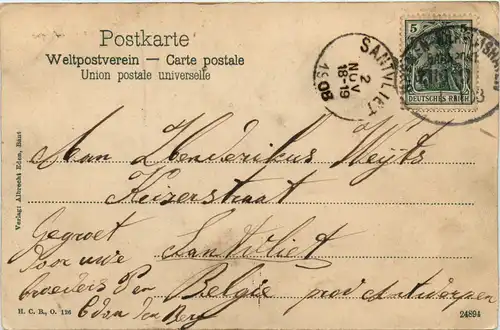 Postkarte
Weltpostverein — Carte postale
Union postale universelle
5
DEUTSCHES REICH
SANTVLIET
2
NOV
18-19
1908
Verlag: Albrecht Eden, Bunt
Aan Henderikus Weijts
Keizerstraat
Santvliet
Belgie prov Antwerpen
Gegroet
Door uwe
broeders P en
Eden den Berg
H. C. B., O. 126
24894